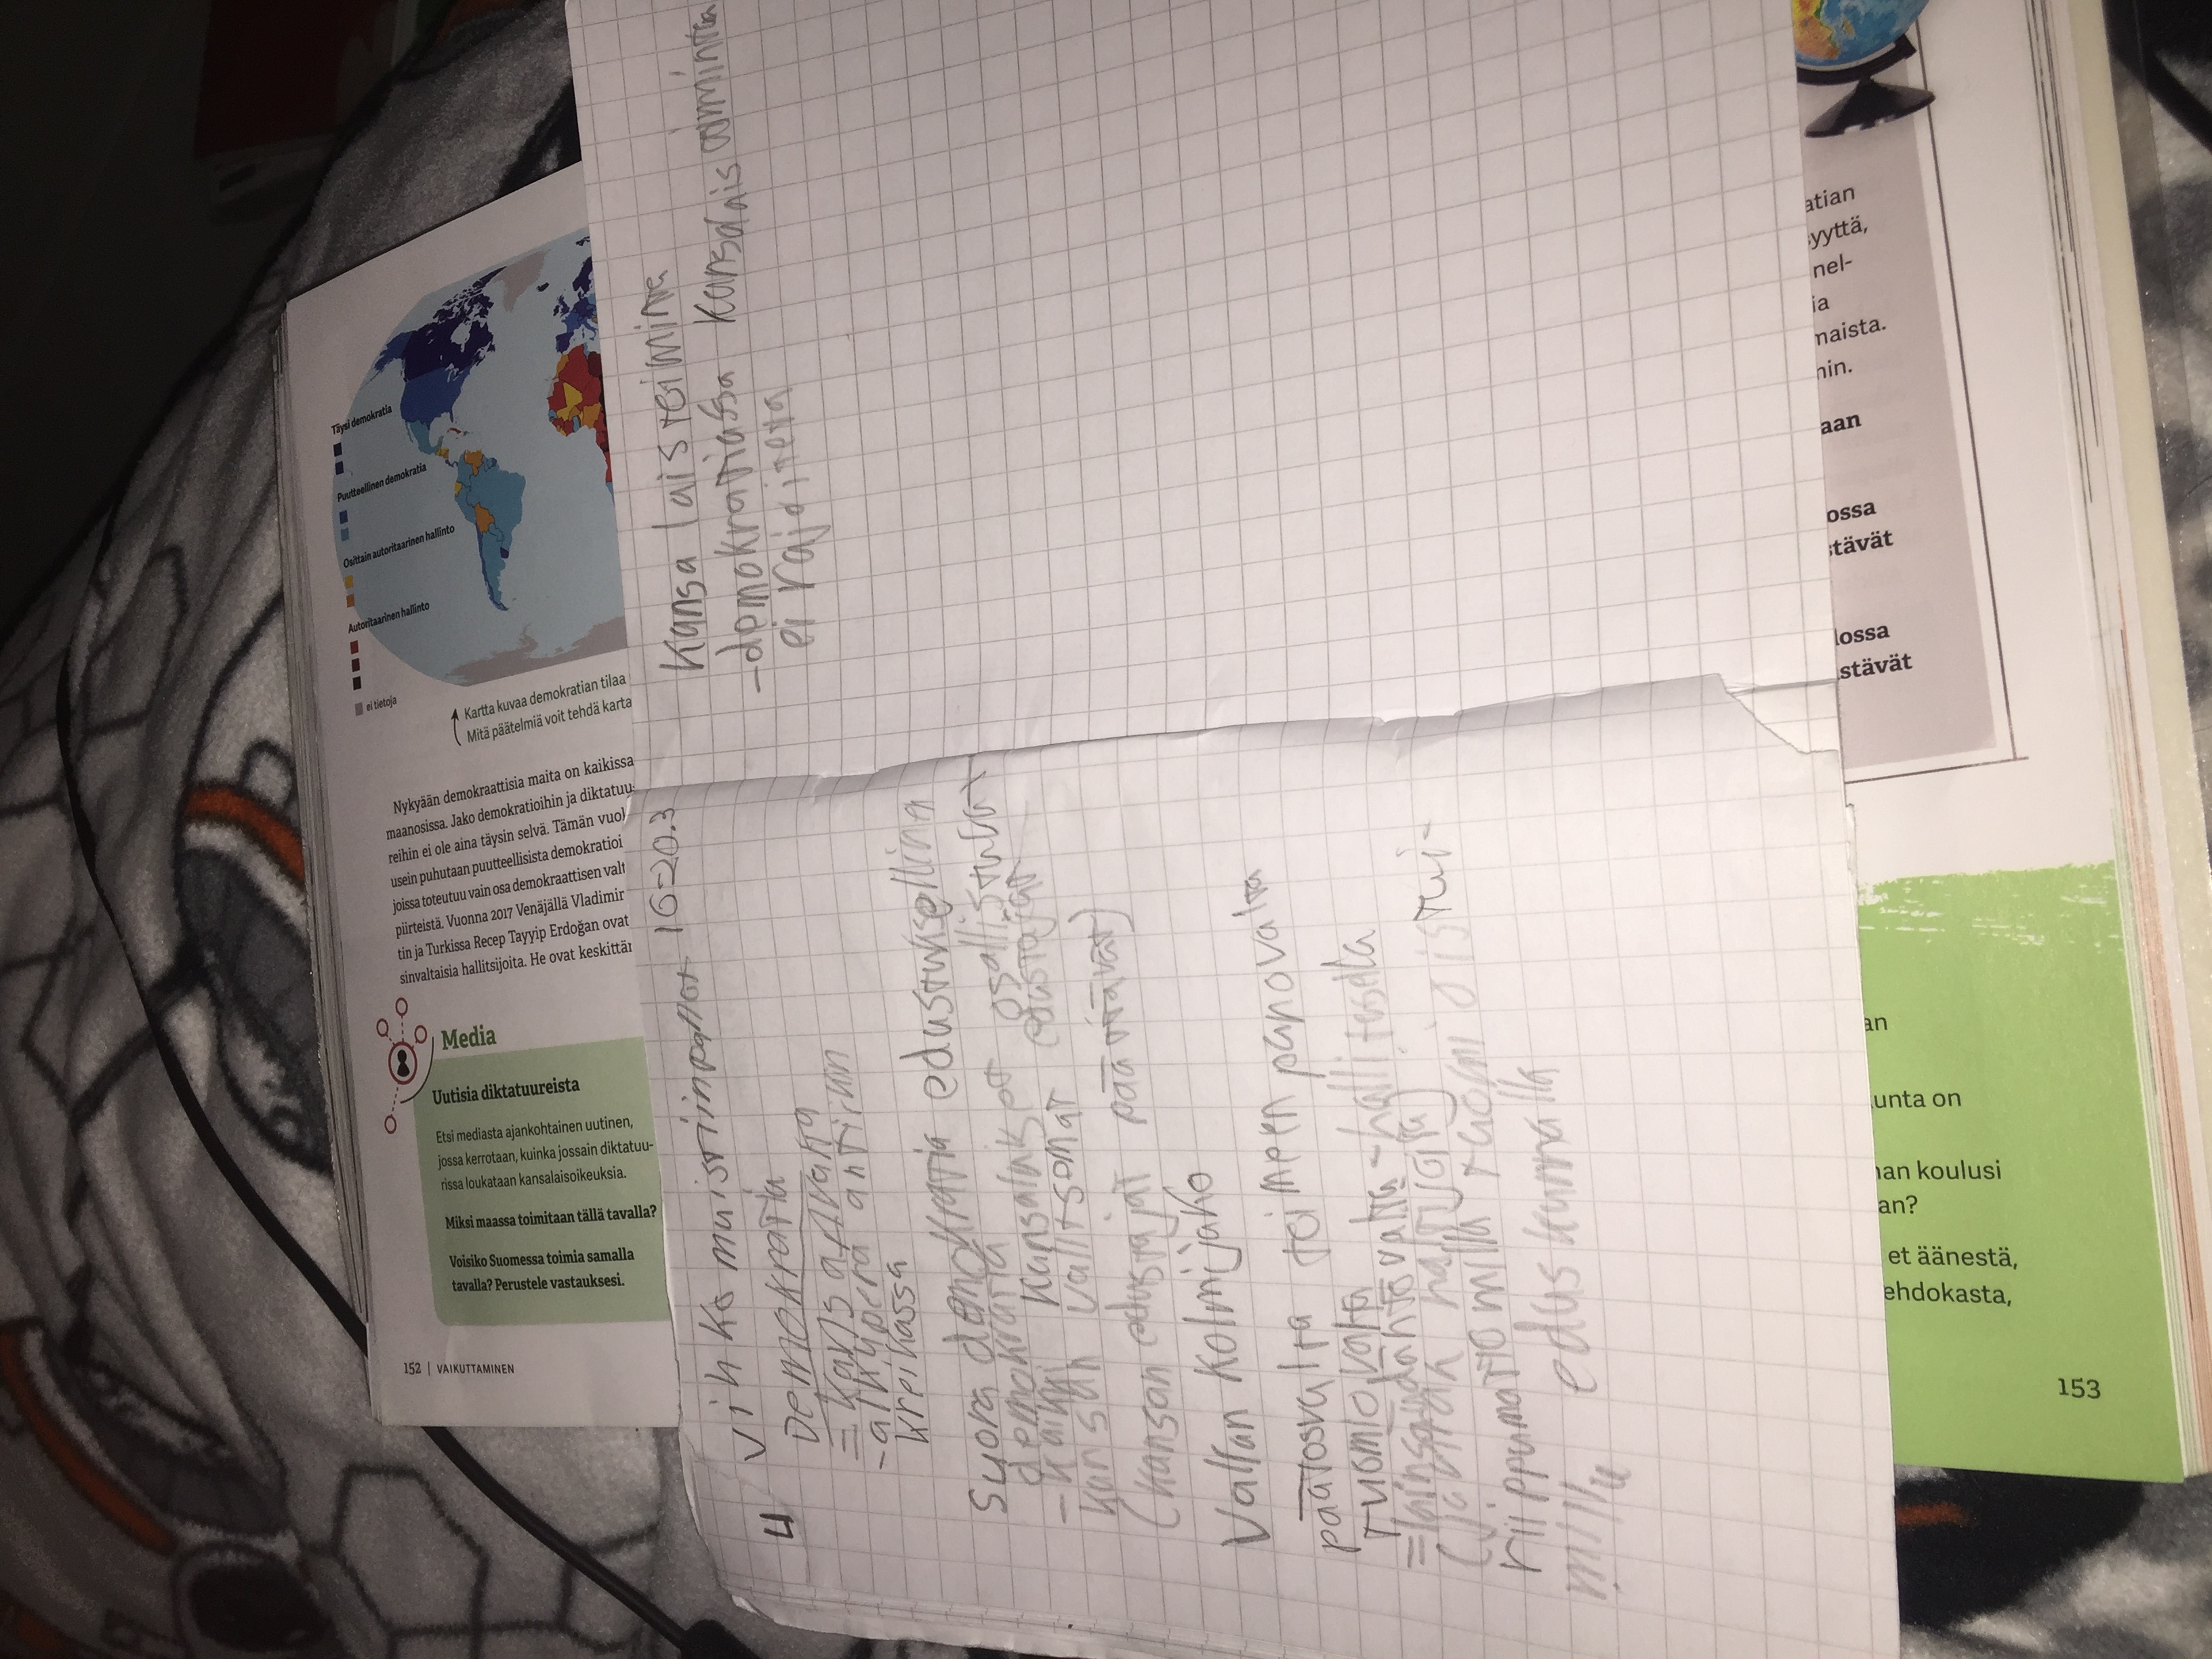 Täysi demokratia
Puutteellinen demokratia
Osittain autoritaarinen hallinto
Autoritaarinen hallinto
ei tietoja
Kartta kuvaa demokratian tilaa
Mitä päätelmiä voit tehdä karta
Nykyään demokraattisia maita on kaikissa
maanosissa. Jako demokratioihin ja diktatuu-
reihin ei ole aina täysin selvä. Tämän vuol
usein puhutaan puutteellisista demokratioi
joissa toteutuu vain osa demokraattisen valt
piirteistä. Vuonna 2017 Venäjällä Vladimir
tin ja Turkissa Recep Tayyip Erdoğan ovat
sinvaltaisia hallitsijoita. He ovat keskittän
Media
Uutisia diktatuureista
Etsi mediasta ajankohtainen uutinen,
jossa kerrotaan, kuinka jossain diktatuu-
rissa loukataan kansalaisoikeuksia.
Miksi maassa toimitaan tällä tavalla?
Voisiko Suomessa toimia samalla
tavalla? Perustele vastauksesi.
152 | VAIKUTTAMINEN
4 Vihko muistiinpanot 16-20.3
Demokratia
= kans
- alkuperä antiikin
kreikassa
Suora demokratia edustuksellina
demokratia
- kaikki kansalaiset osallistuvat
kansan valitsemat edustajat
(kansan edustajat päättävät)
Vallan kolmijako
päätösvalta toimeen panovalta
Tuomiovalta
= lainsäädäntövalta - hallitusella
riippumattomilla tuomioistui-
milla edus kunnalla
Kansa laistoiminta
- demokratiassa kansalais toiminta
ei rajoiteta
atian
yyttä,
nel-
ia
maista.
nin.
aan
ossa
stävät
lossa
stävät
an
unta on
nan koulusi
an?
et äänestä,
ehdokasta,
153